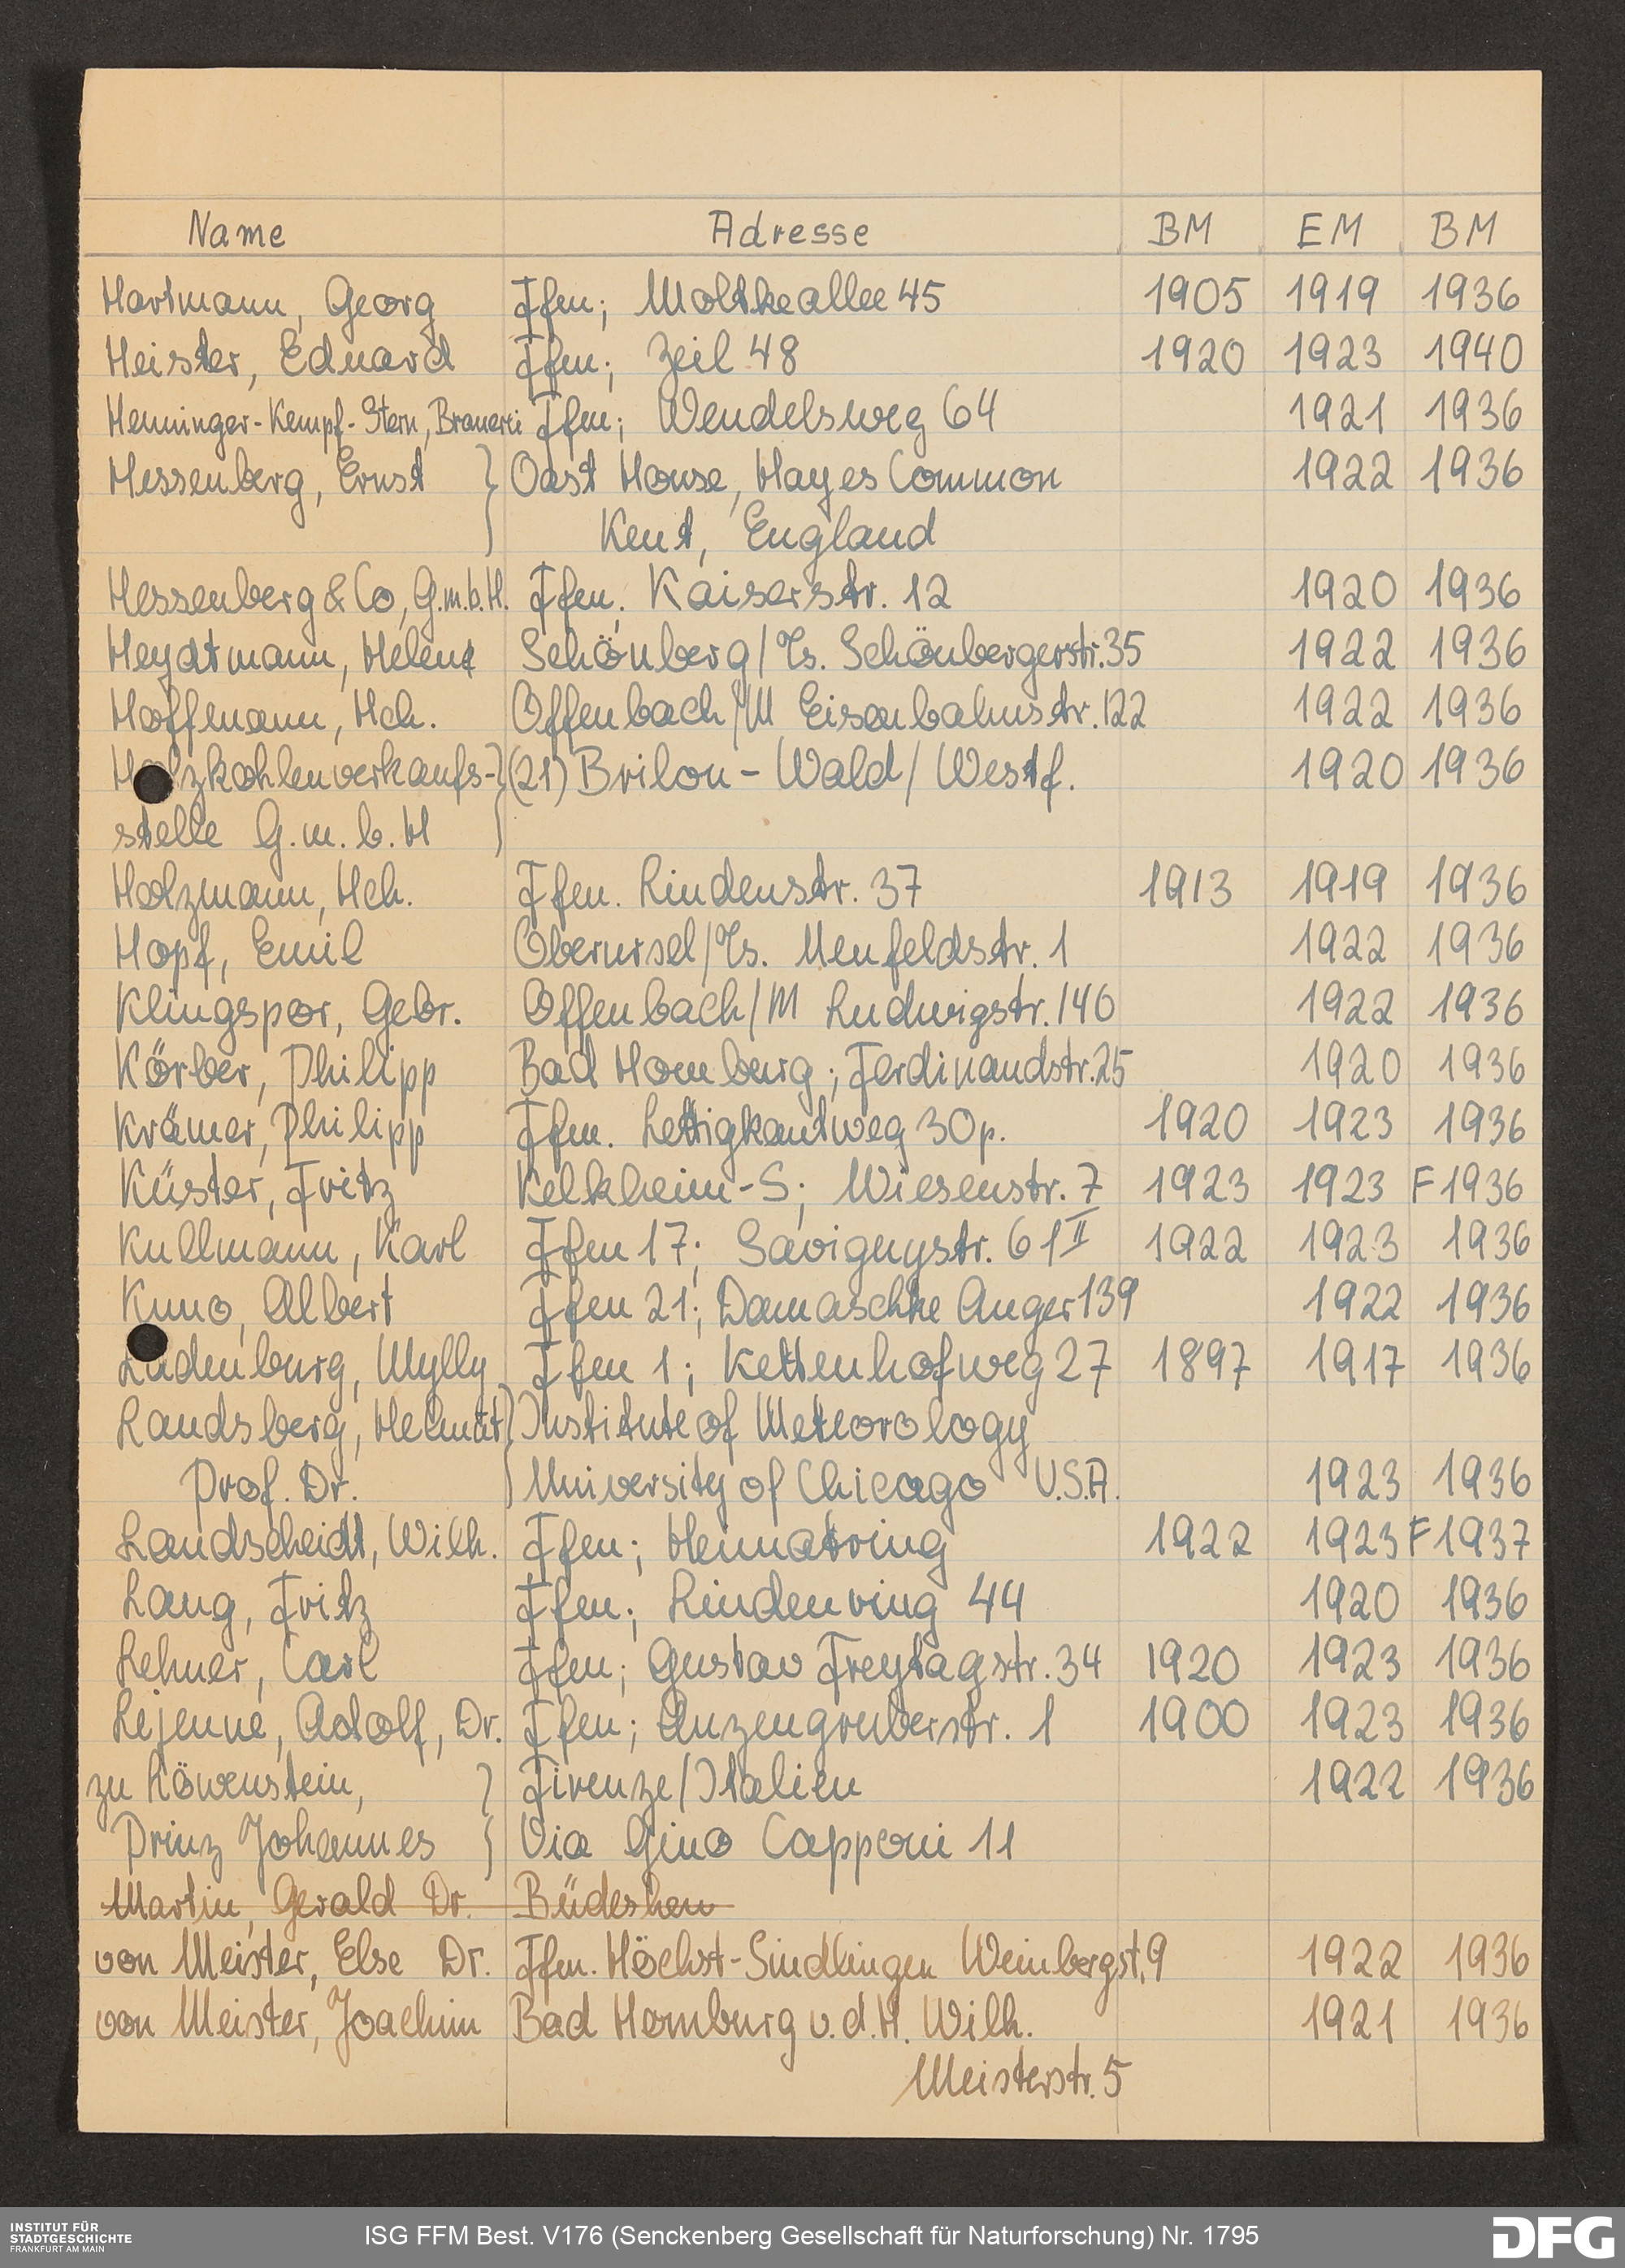 Name Adresse BM EM BM
Hartmann, Georg Ffm; Moltkeallee 45 1905 1919 1936
Heister, Eduard Ffm; Zeil 48 1920 1923 1940
Henninger-Kempf-Stern, Brauerei Ffm; Wendelsweg 64 1921 1936
Hessenberg, Ernst } Oast House, Hayes Common 1922 1936
Kent, England
Hessenberg & Co, G.m.b.H. Ffm; Kaiserstr. 12 1920 1936
Heydtmann, Helene Schönberg/Ts. Schönbergerstr. 35 1922 1936
Hoffmann, Hch. Offenbach/M Eisenbahnstr. 122 1922 1936
Holzkohlenverkaufs- } (21) Brilon-Wald/Westf. 1920 1936
stelle G.m.b.H
Holzmann, Hch. Ffm. Lindenstr. 37 1913 1919 1936
Hopf, Emil Oberursel/Ts. Menfeldstr. 1 1922 1936
Klingspor, Gebr. Offenbach/M Ludwigstr. 140 1922 1936
Körber, Philipp Bad Homburg; Ferdinandstr. 25 1920 1936
Krämer, Philipp Ffm. Lettigkautweg 30 p. 1920 1923 1936
Küster, Fritz Kelkheim-S; Wiesenstr. 7 1923 1923 F 1936
Kullmann, Karl Ffm 17; Savignystr. 61 II 1922 1923 1936
Kuno, Albert Ffm 21; Damaschke Anger 139 1922 1936
Ladenburg, Mylly Ffm 1; Kettenhofweg 27 1897 1917 1936
Landsberg, Helmut } Institute of Meteorology
Prof. Dr. University of Chicago U.S.A. 1923 1936
Landscheidt, Wilh. Ffm; Heimatring 1922 1923 F 1937
Lang, Fritz Ffm; Lindenring 44 1920 1936
Lehner, Carl Ffm; Gustav Freytagstr. 34 1920 1923 1936
Lejeune, Adolf, Dr. Ffm; Anzengruberstr. 1 1900 1923 1936
zu Löwenstein, } Firenze/Italien 1922 1936
Prinz Johannes Via Gino Capponi 11
Martin, Gerald Dr. Büdeshen
von Meister, Else Dr. Ffm. Höchst-Sindlingen Weinbergst. 9 1922 1936
von Meister, Joachim Bad Homburg v.d.H. Wilh. 1921 1936
Meisterstr. 5
INSTITUT FÜR
STADTGESCHICHTE
FRANKFURT AM MAIN
ISG FFM Best. V176 (Senckenberg Gesellschaft für Naturforschung) Nr. 1795
DFG